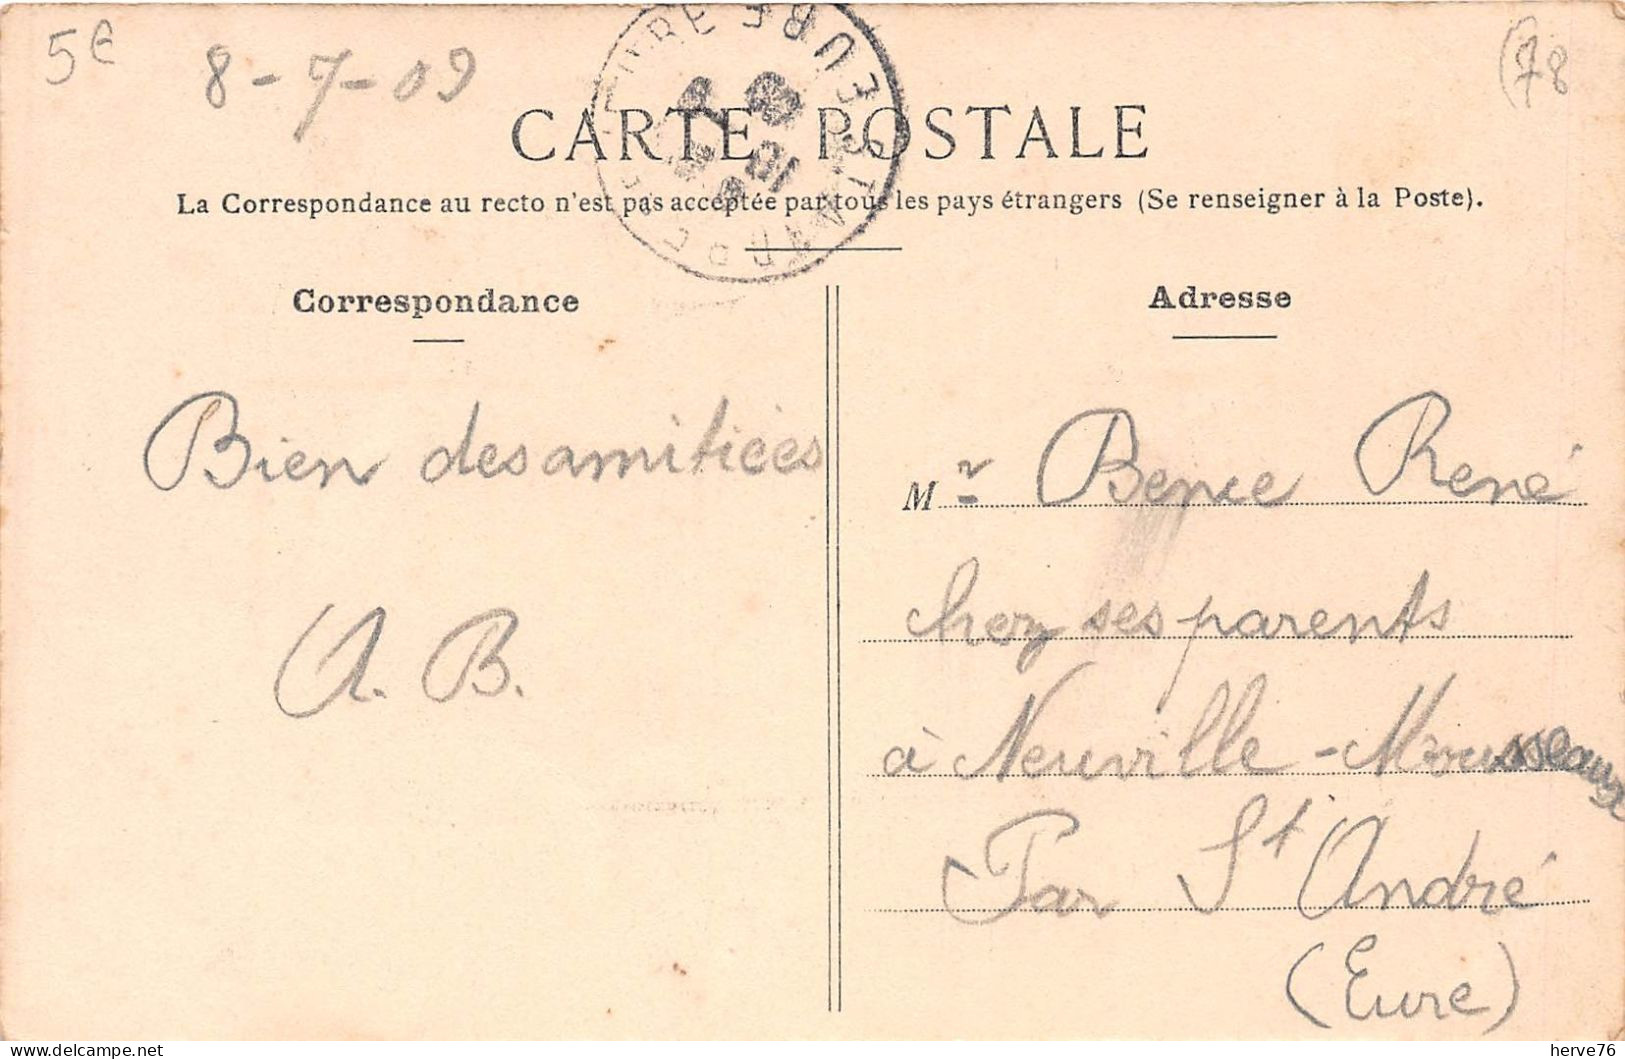 5e
8-7-09
(78
CARTE POSTALE
La Correspondance au recto n'est pas acceptée par tous les pays étrangers (Se renseigner à la Poste).
Correspondance
Bien des amitiées
A. B.
Adresse
Mr Bence René
chez ses parents
à Neuville-Mousseaux
Par St André
(Eure)
herve76